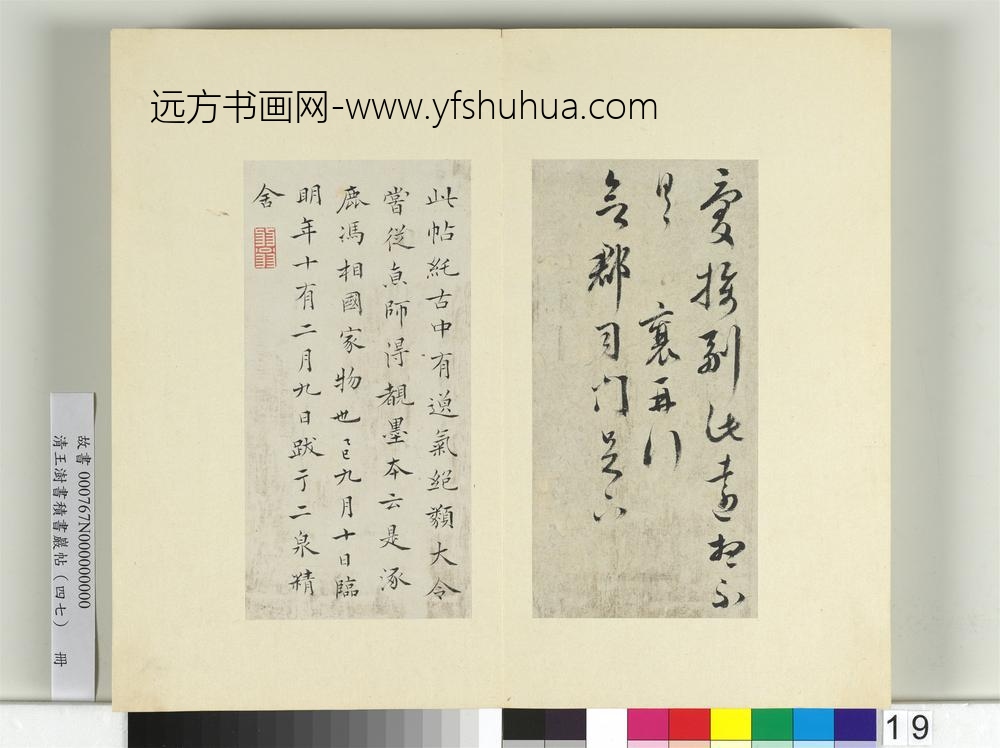 远方书画网-www.yfshuhua.com
遠想不
具 襄再行
合郡司門足下
此帖純古中有逸氣絕類大令
嘗從京師得覩墨本云是涿
鹿馮相國家物也乙巳九月十日臨
明年十有二月九日跋于二泉精
舍
故書 000767N000000000
清王澍書積書巖帖（四七） 冊
19